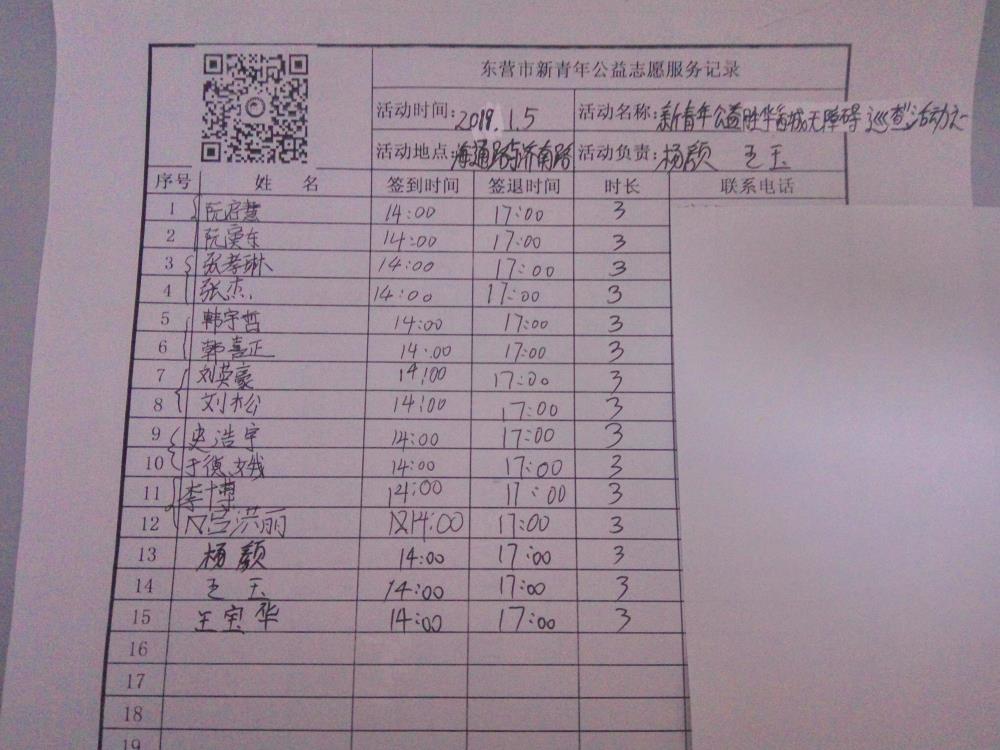 东营市新青年公益志愿服务记录
活动时间:2019.1.5 活动名称:新青年公益胜华商城无障碍巡查活动之一
活动地点:海通路与济南路 活动负责:杨颖 王玉
序号 姓名 签到时间 签退时间 时长 联系电话
1 阮启慧 14:00 17:00 3
2 阮寅东 14:00 17:00 3
3 张孝琳 14:00 17:00 3
4 张杰 14:00 17:00 3
5 韩宇哲 14:00 17:00 3
6 韩喜正 14:00 17:00 3
7 刘英豪 14:00 17:00 3
8 刘松 14:00 17:00 3
9 史浩宇 14:00 17:00 3
10 于德娥 14:00 17:00 3
11 李博 14:00 17:00 3
12 宫洪丽 14:00 17:00 3
13 杨颖 14:00 17:00 3
14 王玉 14:00 17:00 3
15 王宝华 14:00 17:00 3
16
17
18
19